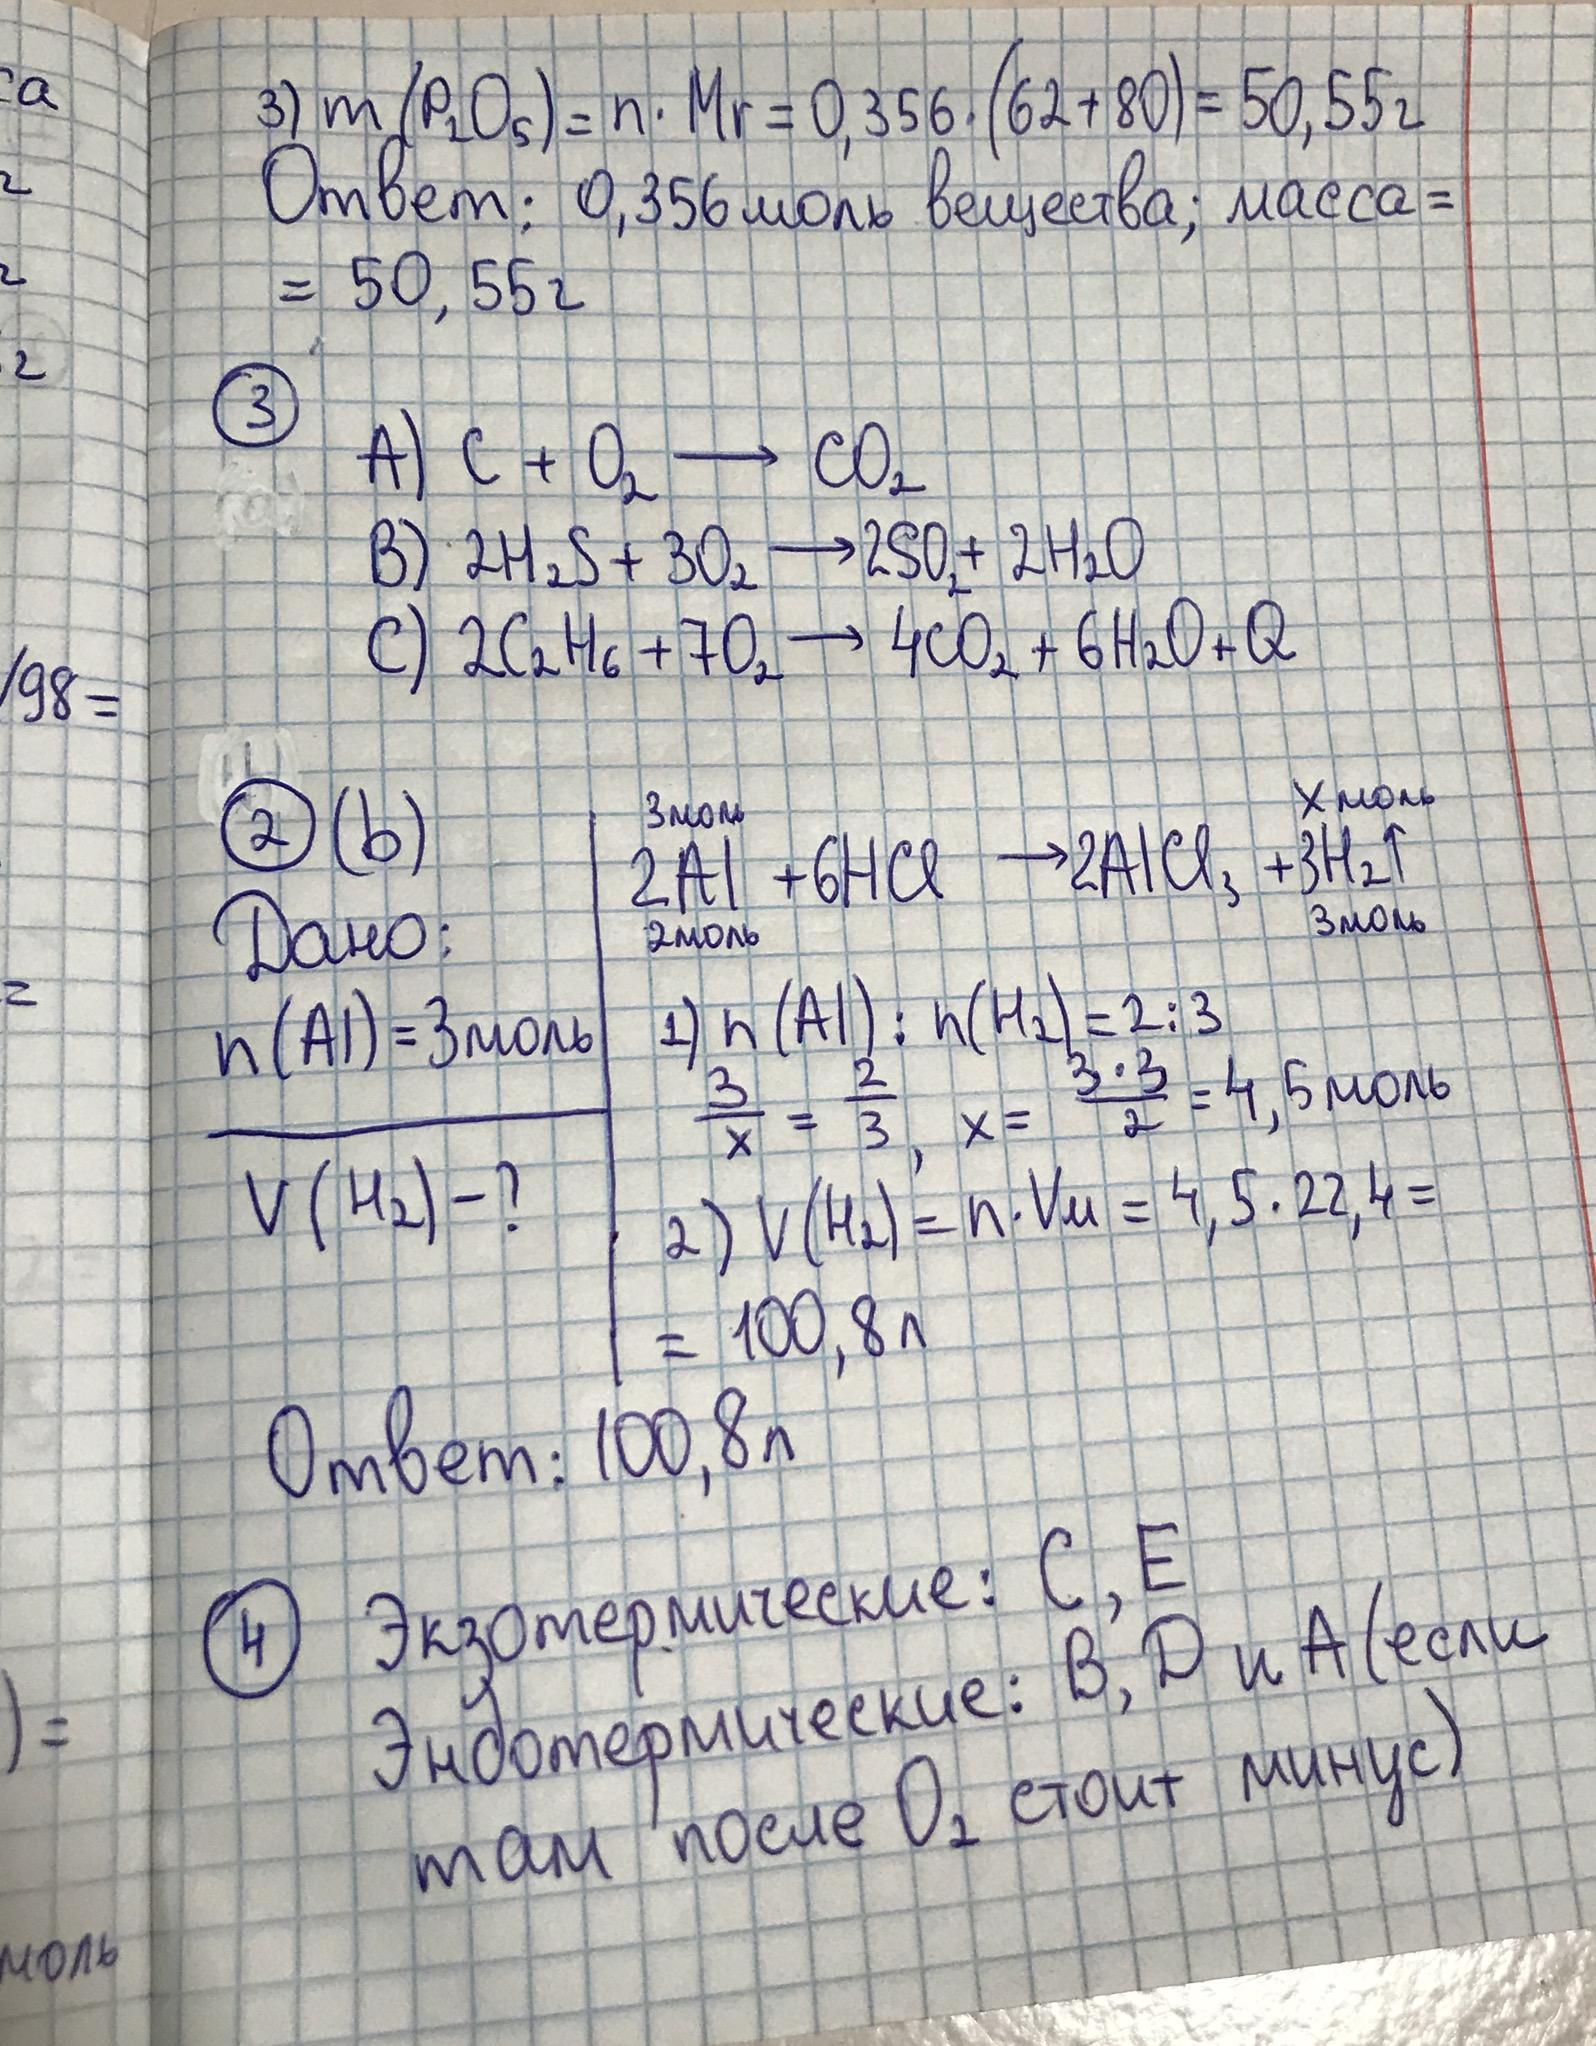 са
г
г
г
/98=
=
)=
моль
3) m(P₂O₅)=n·Mr=0,356·(62+80)=50,55г
Ответ: 0,356моль вещества; масса=
= 50,55г
3
A) C + O₂ → CO₂
B) 2H₂S+3O₂ →2SO₂+ 2H₂O
C) 2C₂H₆+7O₂ → 4CO₂+6H₂O+Q
2 (b)
Дано:
n(Al)=3моль
V(H₂)-?
3моль x моль
2Al +6HCl →2AlCl₃ +3H₂↑
2моль 3моль
1) n(Al):n(H₂)=2:3
3/x = 2/3, x= 3·3/2 =4,5моль
2) V(H₂)=n·Vм=4,5·22,4=
= 100,8л
Ответ: 100,8л
4 Экзотермические: C, E
Эндотермические: B, D и A(если
там после O₂ стоит минус)